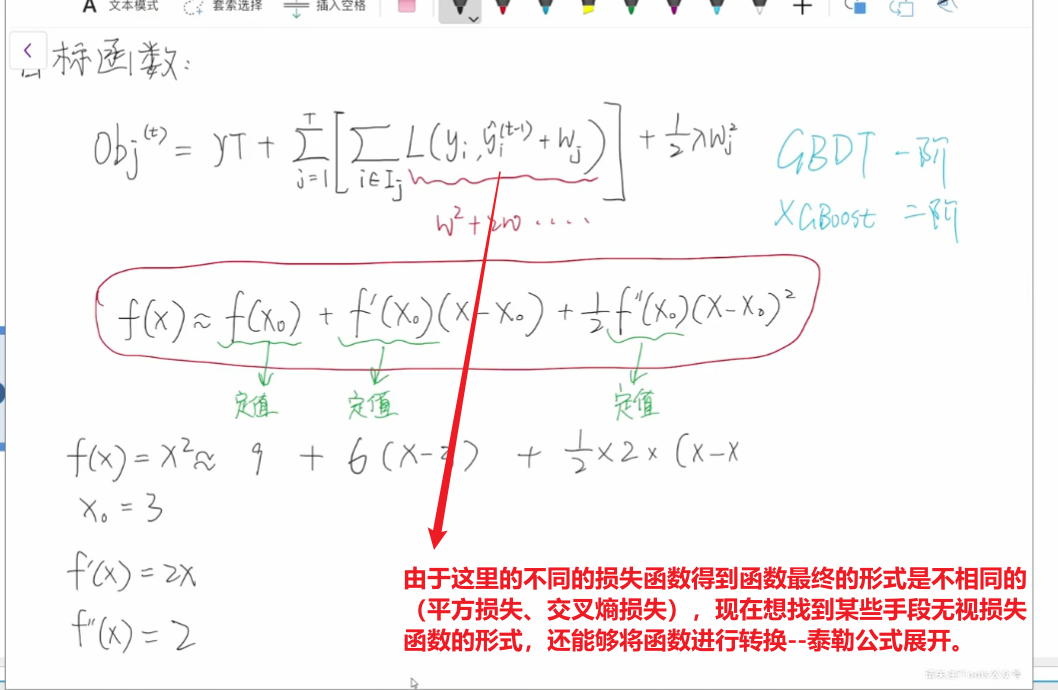 A 文本模式 套索选择 插入空格
目标函数:
Obj^(t) = γT + Σ_{j=1}^{T} [ Σ_{i∈I_j} L(y_i, ŷ_i^(t-1) + w_j) ] + 1/2 λw_j^2
GBDT 一阶
XGBoost 二阶
w^2 + 2w ·····
f(x) ≈ f(x_0) + f'(x_0)(x-x_0) + 1/2 f''(x_0)(x-x_0)^2
定值 定值 定值
f(x) = x^2 ≈ 9 + 6(x-3) + 1/2 × 2 × (x-x
x_0 = 3
f'(x) = 2x
f''(x) = 2
由于这里的不同的损失函数得到函数最终的形式是不相同的
（平方损失、交叉熵损失），现在想找到某些手段无视损失
函数的形式，还能够将函数进行转换--泰勒公式展开。